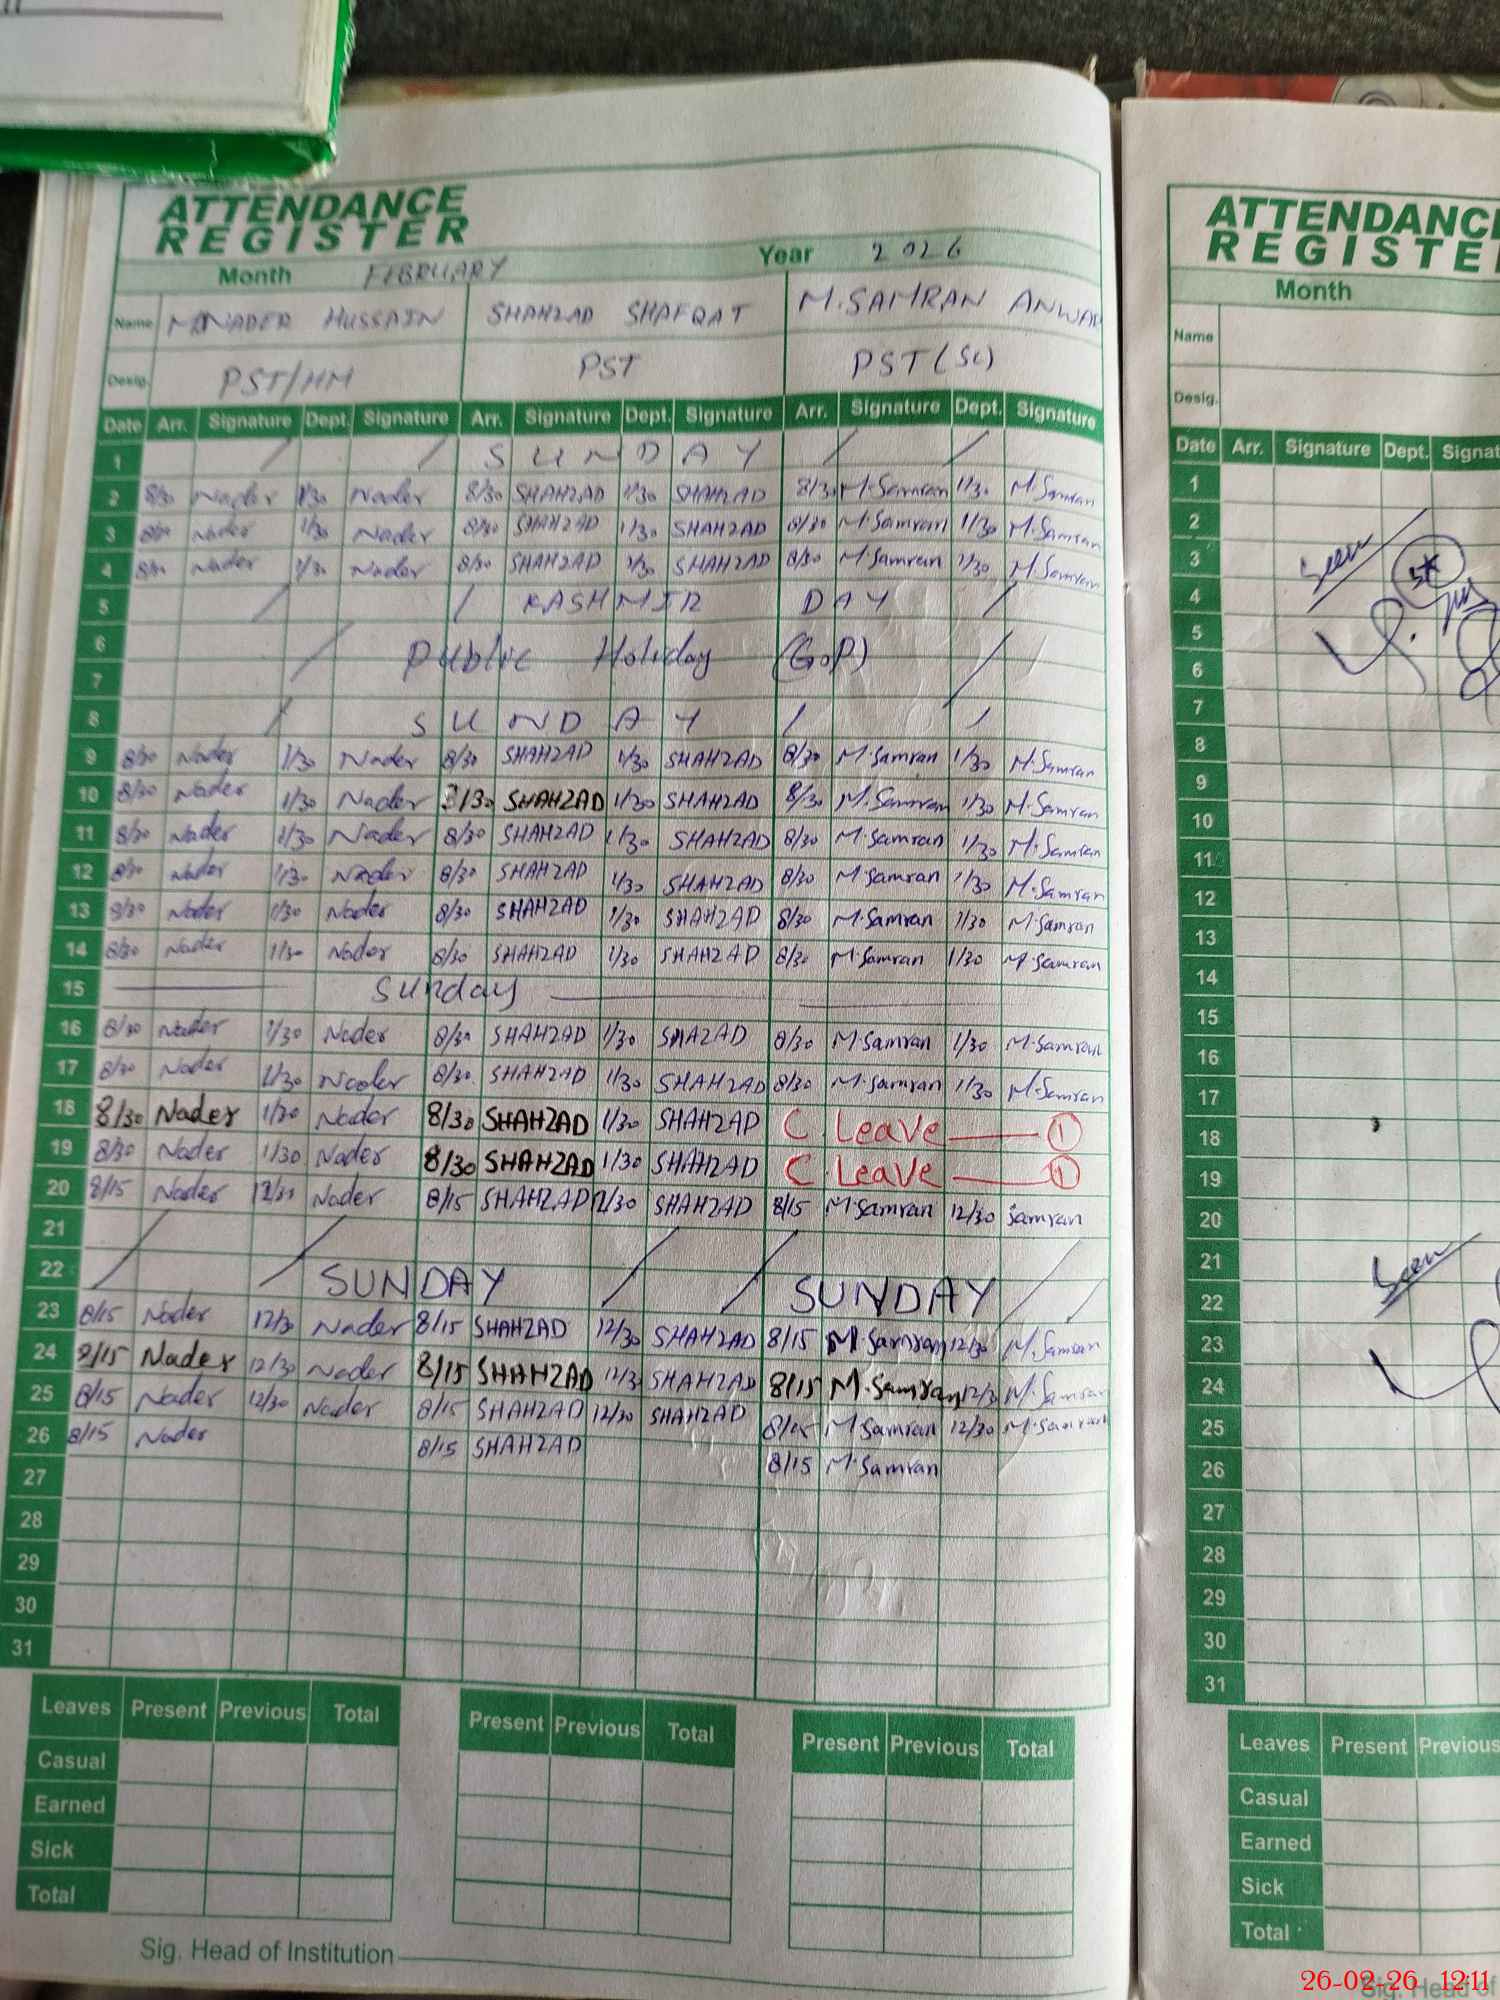 ATTENDANCE
REGISTER
Month FEBRUARY Year 2026
Name NADER HUSSAIN SHAHZAD SHAFQAT M.SAMRAN ANWAR
Desig. PST/HM PST PST(SC)
Date Arr. Signature Dept. Signature Arr. Signature Dept. Signature Arr. Signature Dept. Signature
1 SUNDAY
2 8/30 Nader 1/30 Nader 8/30 SHAHZAD 1/30 SHAHZAD 8/30 M.Samran 1/30 M.Samran
3 8/30 Nader 1/30 Nader 8/30 SHAHZAD 1/30 SHAHZAD 8/30 M.Samran 1/30 M.Samran
4 8/30 Nader 1/30 Nader 8/30 SHAHZAD 1/30 SHAHZAD 8/30 M.Samran 1/30 M.Samran
5 KASHMIR DAY
6 Public Holiday (GoP)
7
8 SUNDAY
9 8/30 Nader 1/30 Nader 8/30 SHAHZAD 1/30 SHAHZAD 8/30 M.Samran 1/30 M.Samran
10 8/30 Nader 1/30 Nader 8/30 SHAHZAD 1/30 SHAHZAD 8/30 M.Samran 1/30 M.Samran
11 8/30 Nader 1/30 Nader 8/30 SHAHZAD 1/30 SHAHZAD 8/30 M.Samran 1/30 M.Samran
12 8/30 Nader 1/30 Nader 8/30 SHAHZAD 1/30 SHAHZAD 8/30 M.Samran 1/30 M.Samran
13 8/30 Nader 1/30 Nader 8/30 SHAHZAD 1/30 SHAHZAD 8/30 M.Samran 1/30 M.Samran
14 8/30 Nader 1/30 Nader 8/30 SHAHZAD 1/30 SHAHZAD 8/30 M.Samran 1/30 M.Samran
15 Sunday
16 8/30 Nader 1/30 Nader 8/30 SHAHZAD 1/30 SHAZAD 8/30 M.Samran 1/30 M.Samran
17 8/30 Nader 1/30 Nader 8/30 SHAHZAD 1/30 SHAHZAD 8/30 M.Samran 1/30 M.Samran
18 8/30 Nader 1/30 Nader 8/30 SHAHZAD 1/30 SHAHZAD C Leave 1
19 8/30 Nader 1/30 Nader 8/30 SHAHZAD 1/30 SHAHZAD C Leave
20 8/15 Nader Nader 8/15 SHAHZAD 12/30 SHAHZAD 8/15 M.Samran 12/30 Samran
21
22 SUNDAY SUNDAY
23 8/15 Nader 12/30 Nader 8/15 SHAHZAD 12/30 SHAHZAD 8/15 M.Samran 12/30 M.Samran
24 8/15 Nader 12/30 Nader 8/15 SHAHZAD 12/30 SHAHZAD 8/15 M.Samran 12/30 M.Samran
25 8/15 Nader 12/30 Nader 8/15 SHAHZAD 12/30 SHAHZAD 8/15 M.Samran 12/30 M.Samran
26 8/15 Nader 8/15 SHAHZAD 8/15 M.Samran
27
28
29
30
31
Leaves Present Previous Total Present Previous Total Present Previous Total
Casual
Earned
Sick
Total
Sig. Head of Institution
ATTENDANC
REGISTE
Month
Name
Desig.
Date Arr. Signature Dept. Signat
1
2
3 Seen
4
5
6
7
8
9
10
11
12
13
14
15
16
17
18
19
20
21 Seen
22
23
24
25
26
27
28
29
30
31
Leaves Present Previous
Casual
Earned
Sick
Total
Sig. Head of
26-02-26 12:11